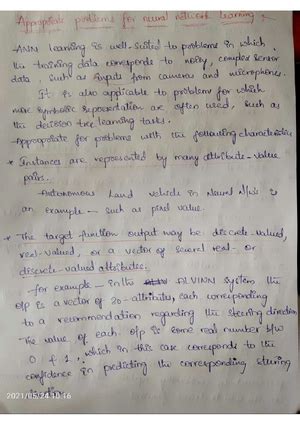 Appropriate problems for neural network learning
- ANN learning is well-suited to problems in which
the training data corresponds to noisy, complex sensor
data, such as inputs from cameras and microphones.
It is also applicable to problems for which
more symbolic representation are often used, such as
the decision tree learning tasks.
- Appropriate for problems with the following characteristics
* Instances are represented by many attribute-value
pairs.
- Autonomous Land vehicle in Neural N/w is
an example - such as pixel value.
* The target function output may be discrete-valued,
real-valued, or a vector of several real- or
discrete-valued attributes.
- for example - in the ALVINN system the
o/p is a vector of 30-attributes, each corresponding
to a recommendation regarding the steering direction
The value of each o/p is some real number b/w
0 & 1, which in this case corresponds to the
confidence in predicting the corresponding steering
2021/05/24 10:16